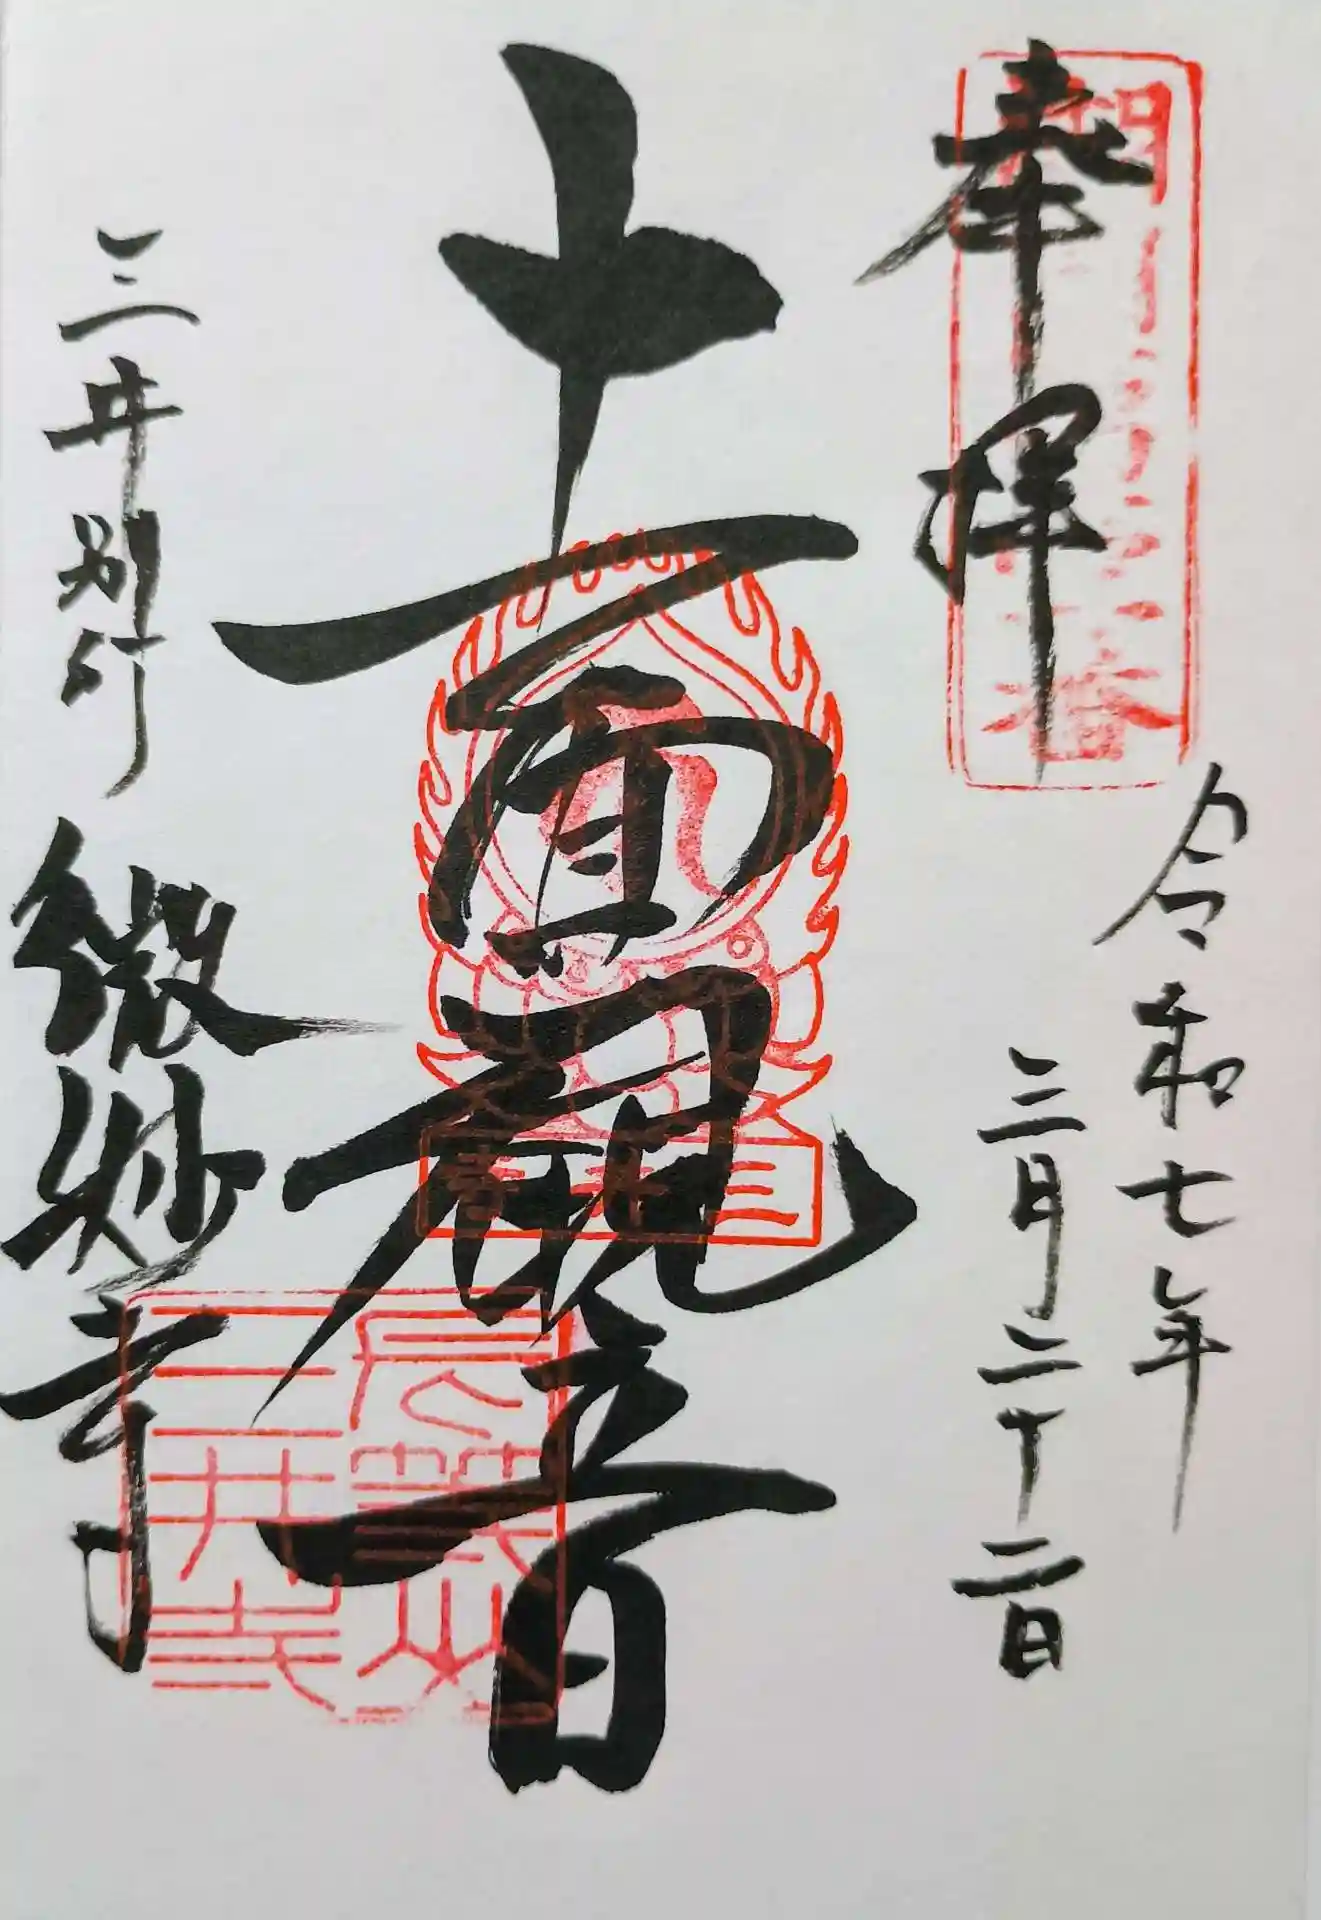 奉拝
令和七年
三月二十二日
十一面観音
三井寺
長等山
三井寺
三井別所
微妙寺